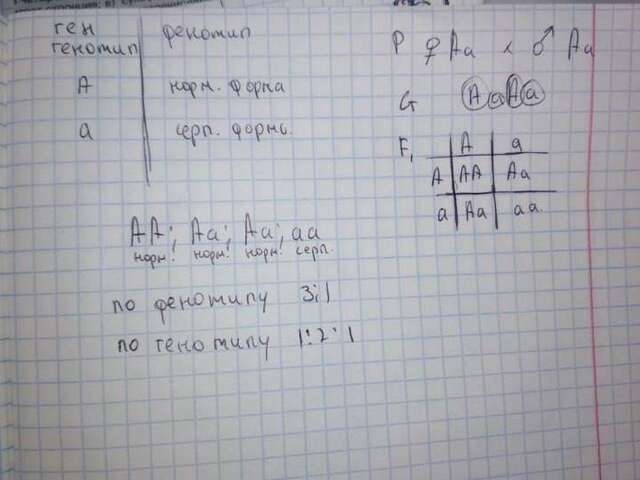 ген
генотип
фенотип
A
норм. форма
a
серп. форма.
P ♀ Aa × ♂ Aa
G A a A a
F1
A a
A AA Aa
a Aa aa
AA; Aa; Aa; aa
норм. норм. норм. серп.
по фенотипу 3:1
по генотипу 1:2:1